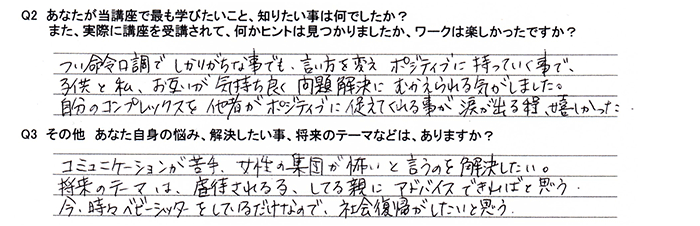 Q2 あなたが当講座で最も学びたいこと、知りたい事は何でしたか？
また、実際に講座を受講されて、何かヒントは見つかりましたか、ワークは楽しかったですか？
つい命令口調でしかりがちな事でも、言い方を変えポジティブに持っていく事で、
子供と私、お互いが気持ち良く問題解決にむかえられる気がしました。
自分のコンプレックスを他者がポジティブに捉えてくれる事が涙が出る程、嬉しかった
Q3 その他 あなた自身の悩み、解決したい事、将来のテーマなどは、ありますか？
コミュニケーションが苦手、女性の集団が怖いと言うのを解決したい。
将来のテーマは、虐待されるる、してる親にアドバイスできればと思う.
今、時々ベビーシッターをしているだけなので、社会復帰がしたいと思う.